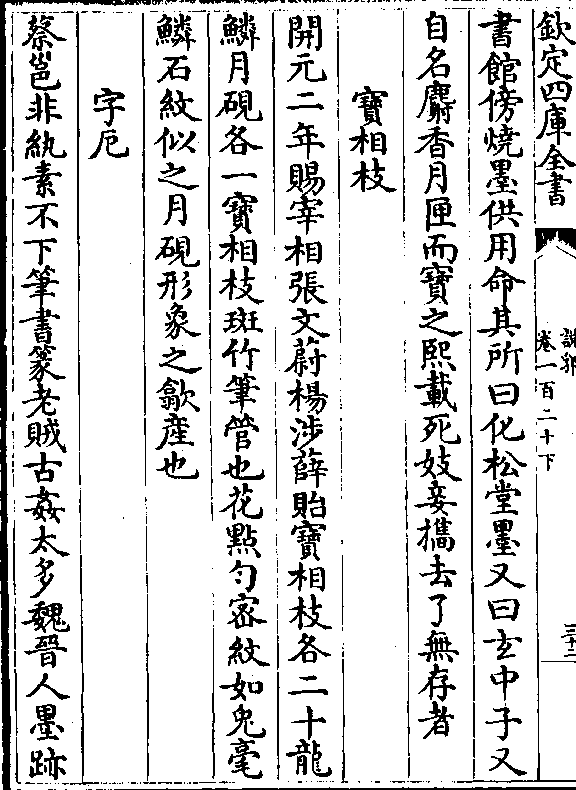 欽定四庫全書
說郛
卷一百二十下
三十二
書館傍燒墨供用命其所曰化松堂墨又曰玄中子又
自名麝香月匣而寶之熙載死妓妾攜去了無存者
寶相枝
開元二年賜宰相張文蔚楊涉薛貽寶相枝各二十龍
鱗月硯各一寶相枝斑竹筆管也花點勻宻紋如兔毫
鱗石紋似之月硯形象之歙産也
字厄
蔡邕非紈素不下筆書篆老賊古姦太多魏晉人墨跡